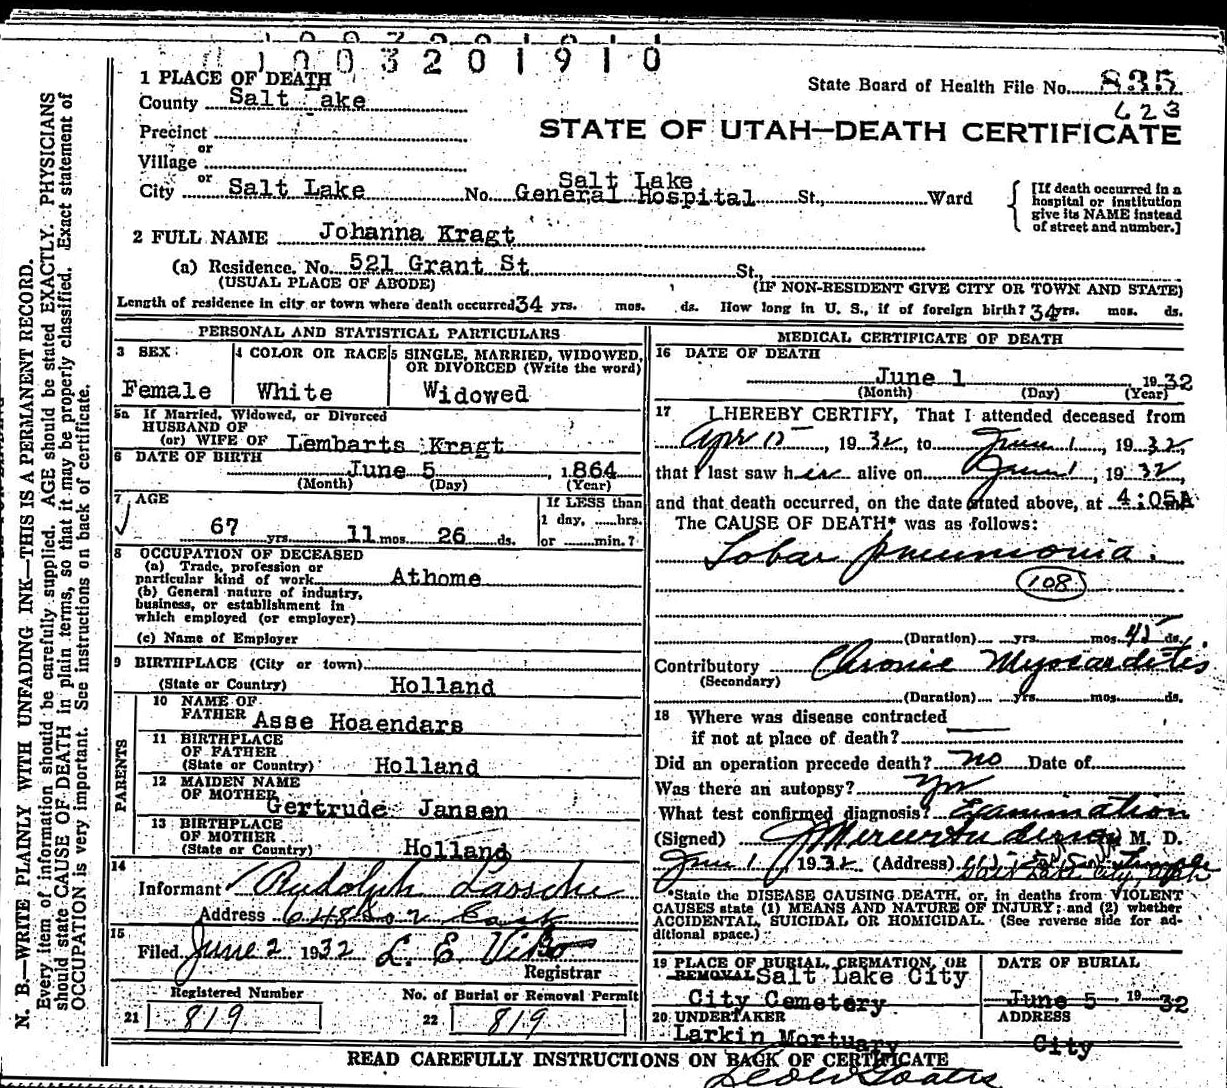 1003201910
State Board of Health File No. 835
623
1 PLACE OF DEATH
County Salt Lake
STATE OF UTAH—DEATH CERTIFICATE
Precinct
or
Village
or
City Salt Lake No. Salt Lake General Hospital St., Ward
[If death occurred in a hospital or institution give its NAME instead of street and number.]
2 FULL NAME Johanna Kragt
(a) Residence. No. 521 Grant St St.,
(USUAL PLACE OF ABODE) (IF NON-RESIDENT GIVE CITY OR TOWN AND STATE)
Length of residence in city or town where death occurred 34 yrs. mos. ds. How long in U. S., if of foreign birth? 34 yrs. mos. ds.
PERSONAL AND STATISTICAL PARTICULARS
3 SEX
Female
4 COLOR OR RACE
White
5 SINGLE, MARRIED, WIDOWED, OR DIVORCED (Write the word)
Widowed
5a If Married, Widowed, or Divorced
HUSBAND OF
(or) WIFE OF Lembarts Kragt
6 DATE OF BIRTH
June 5, 1864
(Month) (Day) (Year)
7 AGE
67 yrs. 11 mos. 26 ds.
If LESS than
1 day, ......hrs.
or ......min.?
8 OCCUPATION OF DECEASED
(a) Trade, profession or
particular kind of work Athome
(b) General nature of industry,
business, or establishment in
which employed (or employer)
(c) Name of Employer
9 BIRTHPLACE (City or town)
(State or Country) Holland
PARENTS
10 NAME OF
FATHER Asse Hoaendars
11 BIRTHPLACE
OF FATHER
(State or Country) Holland
12 MAIDEN NAME
OF MOTHER Gertrude Jansen
13 BIRTHPLACE
OF MOTHER
(State or Country) Holland
14
Informant Rudolph Lassche
Address 648 So 2 East
15
Filed June 2 1932 L. E. Viko
Registrar
Registered Number
21 819
No. of Burial or Removal Permit
22 819
MEDICAL CERTIFICATE OF DEATH
16 DATE OF DEATH
June 1 1932
(Month) (Day) (Year)
17 I HEREBY CERTIFY, That I attended deceased from
Apr 15, 1932, to June 1, 1932,
that I last saw her alive on June 1, 1932,
and that death occurred, on the date stated above, at 4:05A
The CAUSE OF DEATH* was as follows:
Lobar pneumonia.
108
(Duration) yrs. mos. 45 ds.
Contributory Chronic Myocarditis
(Secondary)
(Duration) yrs. mos. ds.
18 Where was disease contracted
if not at place of death?
Did an operation precede death? no Date of
Was there an autopsy? yes
What test confirmed diagnosis? Examination
(Signed) J Mercer Anderson, M. D.
June 1, 1932 (Address) Salt Lake City, Utah
*State the DISEASE CAUSING DEATH, or, in deaths from VIOLENT
CAUSES state (1) MEANS AND NATURE OF INJURY; and (2) whether
ACCIDENTAL, SUICIDAL OR HOMICIDAL. (See reverse side for ad-
ditional space.)
19 PLACE OF BURIAL, CREMATION, OR
REMOVAL Salt Lake City
City Cemetery
DATE OF BURIAL
June 5 1932
20 UNDERTAKER
Larkin Mortuary
ADDRESS
City
READ CAREFULLY INSTRUCTIONS ON BACK OF CERTIFICATE
N. B.—WRITE PLAINLY WITH UNFADING INK—THIS IS A PERMANENT RECORD.
Every item of information should be carefully supplied. AGE should be stated EXACTLY. PHYSICIANS
should state CAUSE OF DEATH in plain terms, so that it may be properly classified. Exact statement of
OCCUPATION is very important. See instructions on back of certificate.